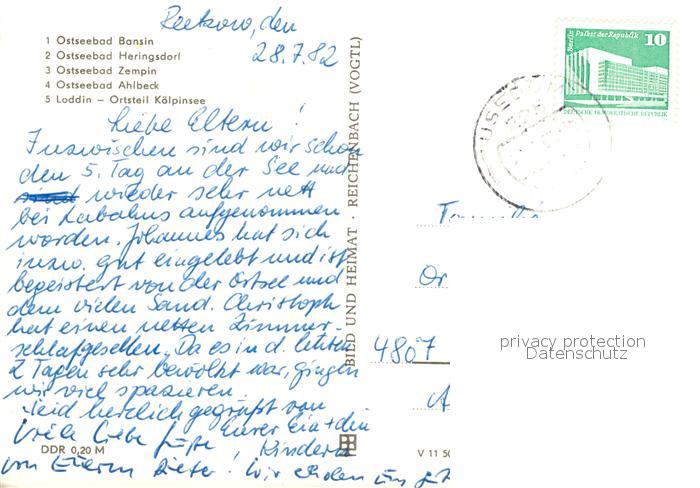 Reetzow, den
28.7.82
1 Ostseebad Bansin
2 Ostseebad Heringsdorf
3 Ostseebad Zempin
4 Ostseebad Ahlbeck
5 Loddin – Ortsteil Kölpinsee
Liebe Eltern!
Inzwischen sind wir schon
den 5. Tag an der See und
wieder sehr nett
bei aufgenommen
worden. Johannes hat sich
inzw. gut eingelebt und ist
begeistert von der Ostsee und
dem vielen Sand. Christoph
hat einen netten Zimmer-
schlafgesellen. Da es in d. letzten
2 Tagen sehr bewölkt war, gingen
wir viel spazieren.
Seid herzlich gegrüßt von
Eurer + den
Viele liebe Grüße! Kindern
von Eurem Dieter! Wir erholen uns gut
DDR 0,20 M
BILD UND HEIMAT · REICHENBACH (VOGTL)
Berlin Palast der Republik
10
DEUTSCHE DEMOKRATISCHE REPUBLIK
USEDOM
Or
4807
A
V 11 50
privacy protection
Datenschutz